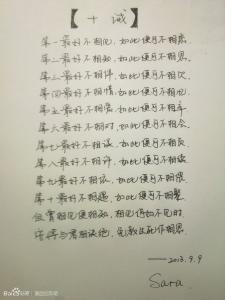 【十诫】
第一最好不相见,如此便可不相恋。
第二最好不相知,如此便可不相思。
第三最好不相伴,如此便可不相欠。
第四最好不相惜,如此便可不相忆。
第五最好不相爱,如此便可不相弃。
第六最好不相对,如此便可不相会。
第七最好不相误,如此便可不相负。
第八最好不相许,如此便可不相续。
第九最好不相依,如此便可不相偎。
第十最好不相遇,如此便可不相聚。
但曾相见便相知,相见何如不见时。
安得与君相诀绝,免教生死作相思。
——2013.9.9
Sara
Bai百度贴吧